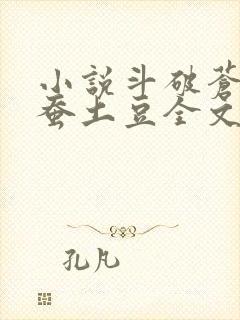 小説斗破蒼
蚕土豆全文
孔凡